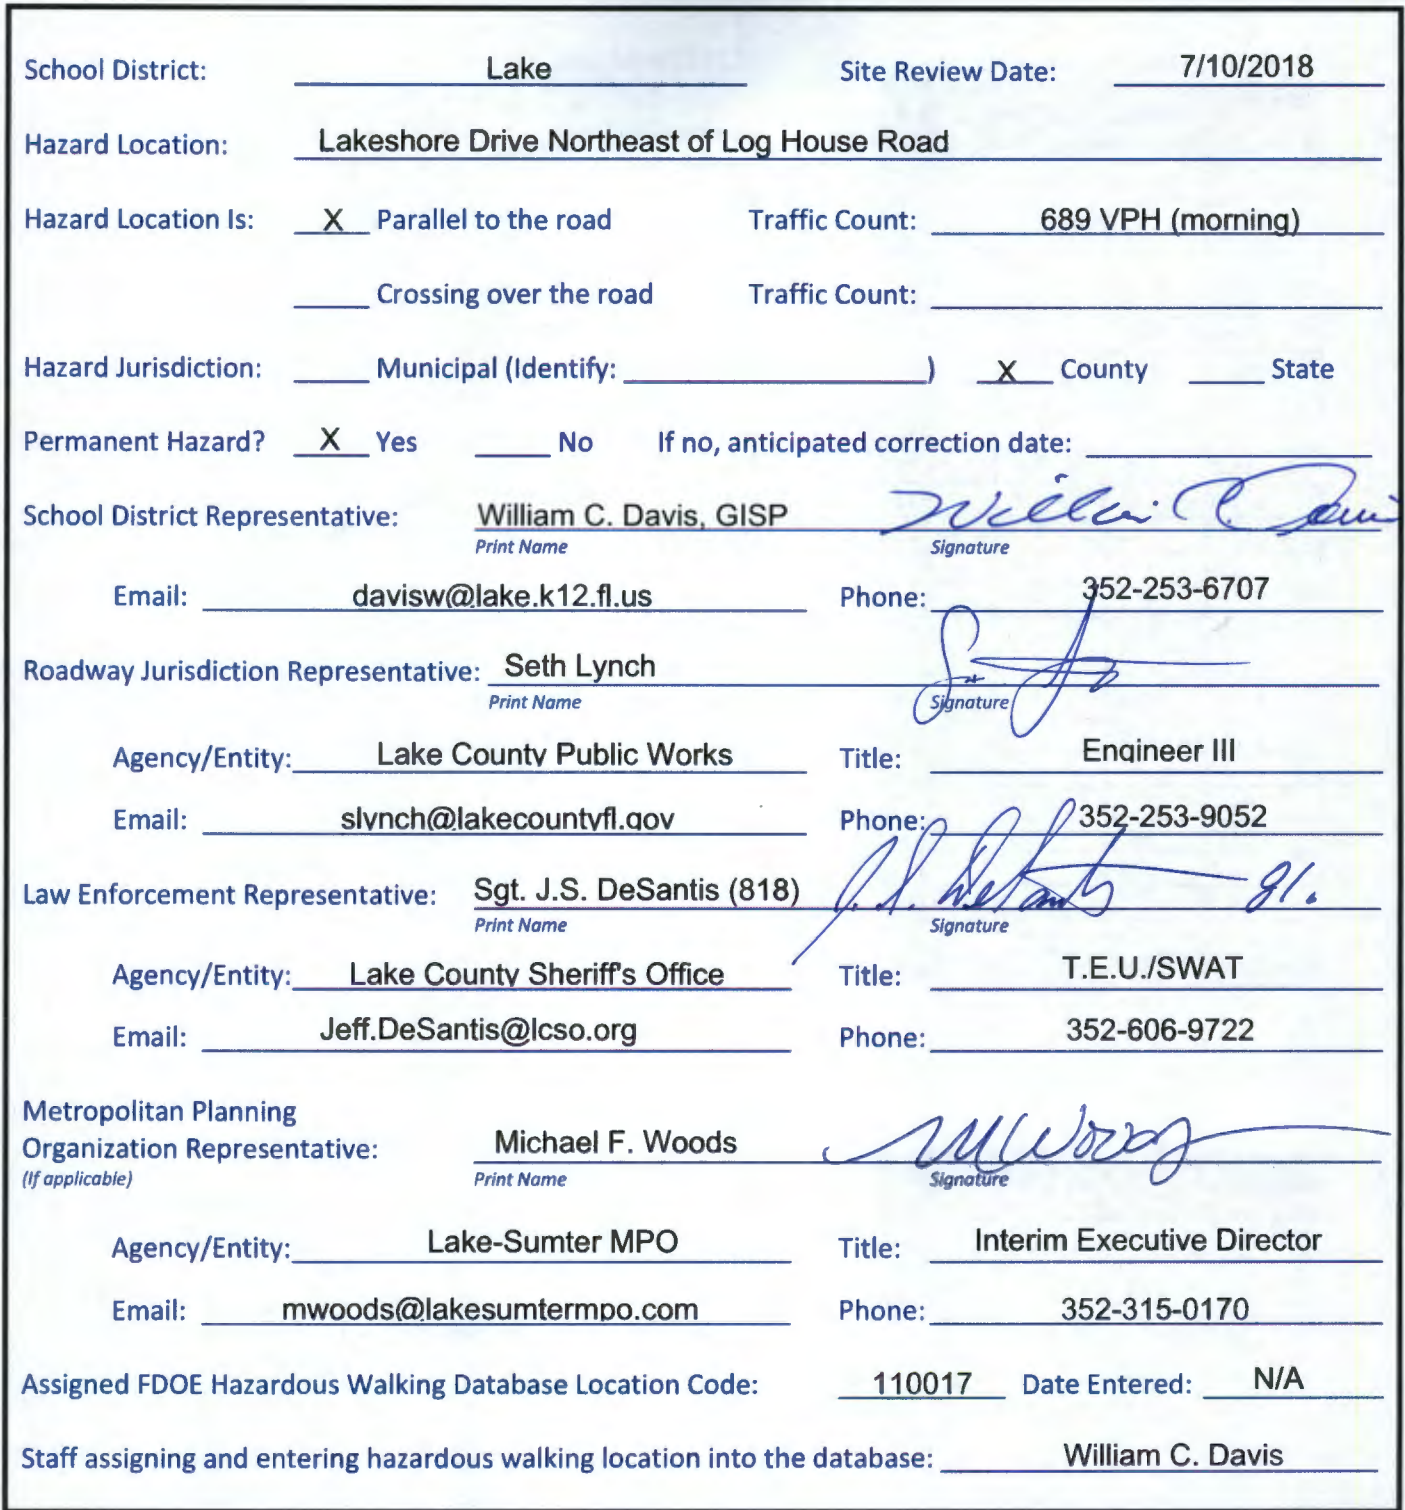 School District: Lake Site Review Date: 7/10/2018
Hazard Location: Lakeshore Drive Northeast of Log House Road
Hazard Location Is: X Parallel to the road Traffic Count: 689 VPH (morning)
Crossing over the road Traffic Count:
Hazard Jurisdiction: Municipal (Identify: ) X County State
Permanent Hazard? X Yes No If no, anticipated correction date:
School District Representative: William C. Davis, GISP William C. Davis
Print Name Signature
Email: davisw@lake.k12.fl.us Phone: 352-253-6707
Roadway Jurisdiction Representative: Seth Lynch
Print Name Signature
Agency/Entity: Lake County Public Works Title: Engineer III
Email: slynch@lakecountyfl.gov Phone: 352-253-9052
Law Enforcement Representative: Sgt. J.S. DeSantis (818) J.S. DeSantis
Print Name Signature
Agency/Entity: Lake County Sheriff's Office Title: T.E.U./SWAT
Email: Jeff.DeSantis@lcso.org Phone: 352-606-9722
Metropolitan Planning
Organization Representative: Michael F. Woods MWoods
(If applicable) Print Name Signature
Agency/Entity: Lake-Sumter MPO Title: Interim Executive Director
Email: mwoods@lakesumtermpo.com Phone: 352-315-0170
Assigned FDOE Hazardous Walking Database Location Code: 110017 Date Entered: N/A
Staff assigning and entering hazardous walking location into the database: William C. Davis